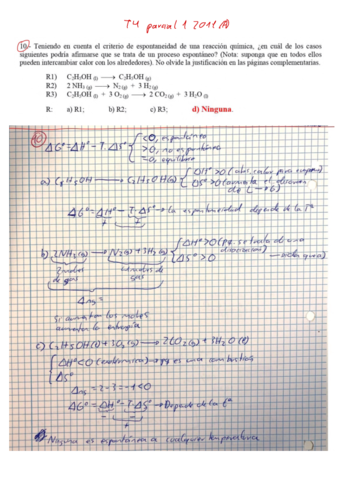 T4 parcial 1 2011 A
10.- Teniendo en cuenta el criterio de espontaneidad de una reacción química, ¿en cuál de los casos
siguientes podría afirmarse que se trata de un proceso espontáneo? (Nota: suponga que en todos ellos
pueden intercambiar calor con los alrededores). No olvide la justificación en las páginas complementarias.
R1) C₂H₅OH (l) ⟶ C₂H₅OH (g)
R2) 2 NH₃ (g) ⟶ N₂(g) + 3 H₂ (g)
R3) C₂H₅OH (l) + 3 O₂ (g) ⟶ 2 CO₂ (g) + 3 H₂O (l)
R: a) R1; b) R2; c) R3; d) Ninguna.
10
ΔG° = ΔH° - T·ΔS° <0, espontáneo
>0, no espontáneo
=0, equilibrio
a) C₂H₅OH ⟶ C₂H₅OH(g) ΔH° >0 (abs. calor para
ΔS° >0 (aumenta el desorden
de L→G)
ΔG° = ΔH° - T·ΔS° → La espontaneidad depende de la Tª
+ +
b) 2NH₃(g) ⟶ N₂(g) + 3H₂(g) ΔH° >0 (pq. se trata de una
disociación)
ΔS° >0
2 moles
de gas
4 moles de
gas
Δn g =
Si aumentan los moles
aumenta la entropía
c) C₂H₅OH(l) + 3O₂(g) ⟶ 2CO₂(g) + 3H₂O (l)
ΔH° <0 (exotérmica) → pq es una combustión
ΔS°
Δn g = 2-3 = -1 <0
ΔG° = ΔH° - T·ΔS° → Depende de la tª
- -
+
Ninguna es espontánea a cualquier temperatura